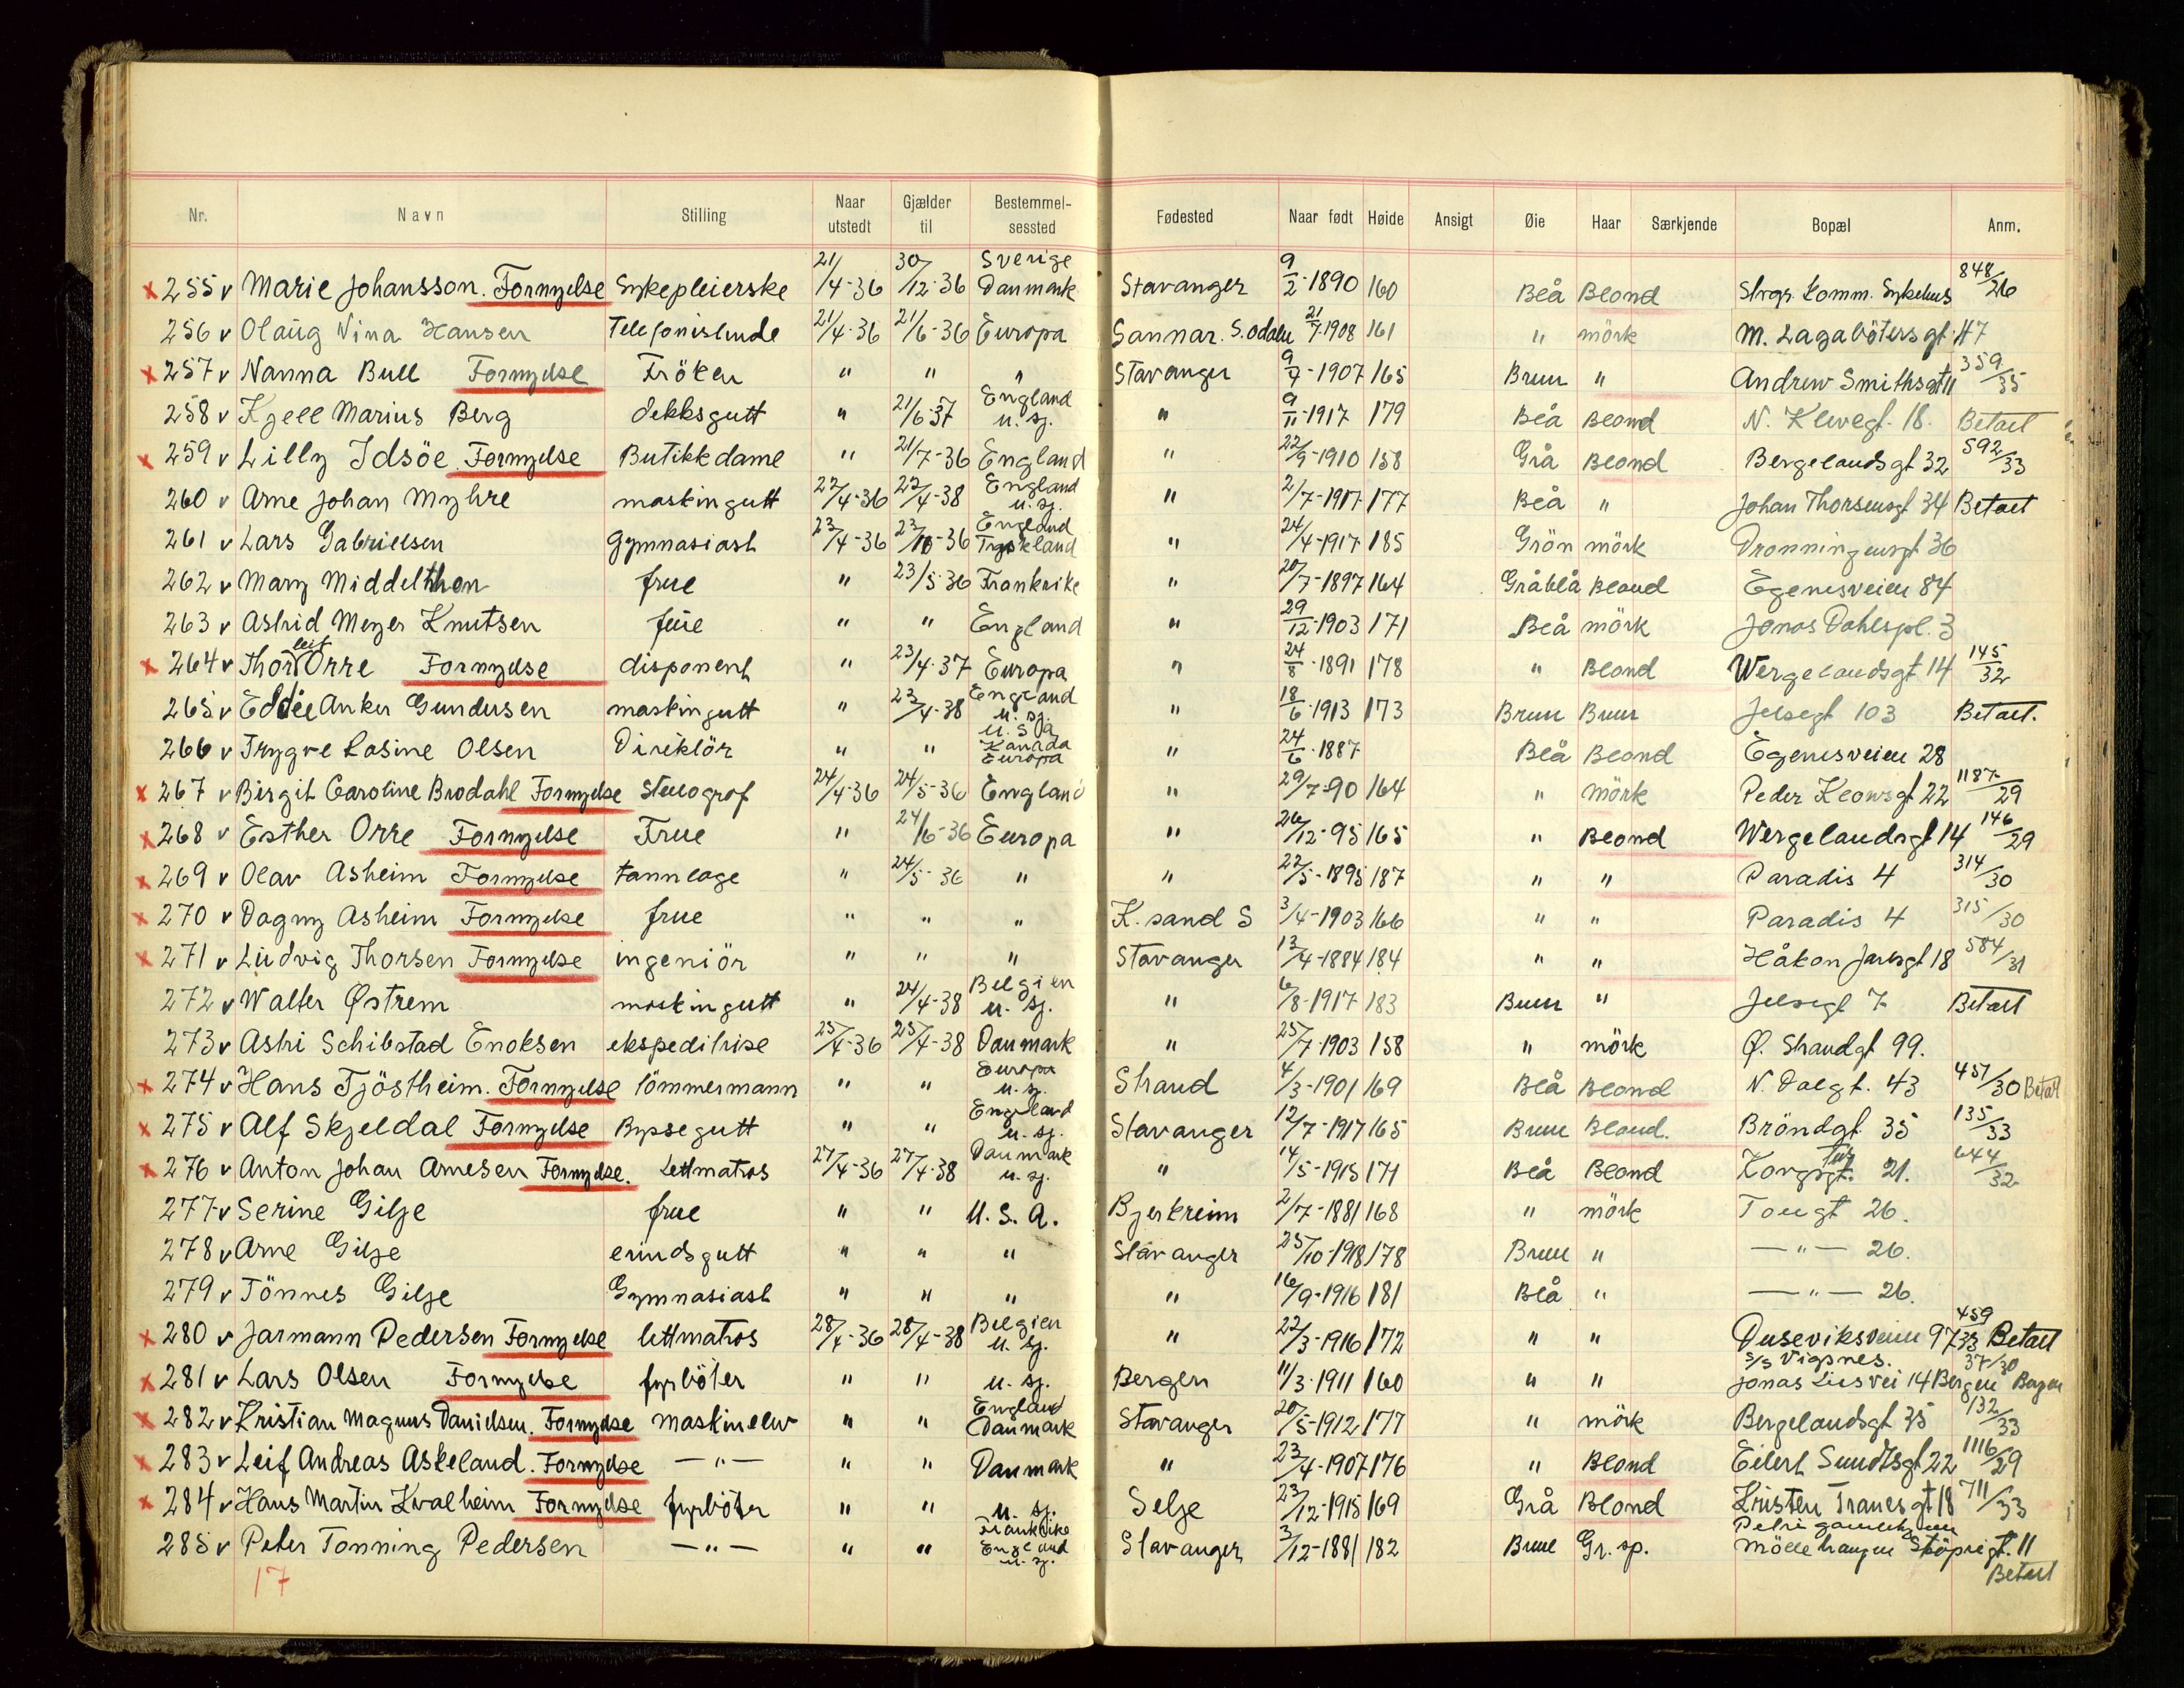 Nr. Navn Stilling Naar utstedt Gjælder til Bestemmel-sessted Fødested Naar født Høide Ansigt Øie Haar Særkjende Bopæl Anm.
x 255 v Marie Johansson. Fornyelse Sykepleierske 21/4-36 30/12-36 Sverige Danmark Stavanger 9/2-1890 160 Blå Blond Stvgr. Komm. Sykehus 848/26
256 v Olaug Nina Hansen Telefonistinde 21/4-36 21/6-36 Europa Sannar. S. Odalen 21/7-1908 161 " mörk M. Lagabötersgt. 47
x 257 v Nanna Bull Fornyelse Fröken " " " Stavanger 9/7-1907 165 Brun " Andrew Smithsgt 11 359/35
258 v Kjell Marius Berg dekksgutt " 21/6-37 England u. sj. " 9/11-1917 179 Blå Blond N. Klevegt. 18. Betalt
x 259 v Lilly Idsöe. Fornyelse Butikkdame " 21/7-36 England " 22/9-1910 158 Grå Blond Bergelandsgt 32 592/33
260 v Arne Johan Myhre maskingutt 22/4-36 22/4-38 England u. sj. " 2/7-1917 177 Blå " Johan Thorsensgt 34 Betalt
261 v Lars Gabrielsen Gymnasiast 23/4-36 23/10-36 England Tyskland " 24/4-1917 185 Grön mörk Dronningensgt 36
262 v Mary Middelthon frue " 23/5-36 Frankrike " 20/7-1897 164 Gråblå Blond Egenesveien 84
263 v Astrid Meyer Knutsen frue " " England " 29/12-1903 171 Blå mörk Jonas Dahlspl. 3
x 264 v Thorleif Orre Fornyelse disponent " 23/4-37 Europa " 24/8-1891 178 " Blond Wergelandsgt 14 145/32
265 v Eddie Anker Gundersen maskingutt " 23/4-38 England u. sj. " 18/6-1913 173 Brun Brun Jelsegt 103 Betalt.
266 v Trygve Losine Olsen Direktör " " U.S.A Kanada Europa " 24/6-1887 Blå Blond Egenesveien 28
x 267 v Birgit Caroline Brodahl Fornyelse Stenograf 24/4-36 24/5-36 England " 29/7-90 164 " mörk Peder Klowsgt 22 1187/29
x 268 v Esther Orre Fornyelse Frue " 24/6-36 Europa " 26/12-95 165 " Blond Wergelandsgt 14 146/29
x 269 v Olav Asheim Fornyelse tannlæge " 24/5-36 " " 22/5-1895 187 " " Paradis 4 314/30
x 270 v Dagny Asheim Fornyelse frue " " " K. sand S 3/4-1903 166 " " Paradis 4 315/30
x 271 v Ludvig Thorsen Fornyelse ingeniör " " " Stavanger 13/4-1884 184 " " Håkon Jarlsgt 18 584/31
272 v Walter Østrem maskingutt " 24/4-38 Belgien u. sj. " 6/8-1917 183 Brun " Jelsegt 7 Betalt
273 v Astri Schibstad Enoksen ekspeditrise 25/4-36 25/4-38 Danmark " 25/7-1903 158 " mörk Ø. Strandgt 99.
x 274 v Hans Tjöstheim. Fornyelse tömmermann " " Europa u. sj. Strand 4/3-1901 169 Blå Blond N. Dalgt. 43 457/30 Betalt
x 275 v Alf Skjeldal Fornyelse Byssegutt " " England u. sj. Stavanger 12/7-1917 165 Brun Blond. Bröndgt 35 135/33
x 276 v Anton Johan Arnesen Fornyelse. Lettmatros 27/4-36 27/4-38 Danmark u. sj. " 14/5-1915 171 Blå Blond Kongsgt. 21. 644/32
277 v Serine Gilje frue " " U.S.A. Bjerkreim 2/7-1881 168 " mörk Tougt 26.
278 v Arne Gilje erindsgutt " " " Stavanger 25/10-1918 178 Brun " —"— 26.
279 v Tönnes Gilje Gymnasiast " " " " 16/9-1916 181 Blå " —"— 26.
x 280 v Jarmann Pedersen Fornyelse lettmatros 28/4-36 28/4-38 Belgien u. sj. " 22/3-1916 172 " " Duseviksveien 97 459/33 Betalt
x 281 v Lars Olsen Fornyelse fyrböter " " u. sj. Bergen 11/3-1911 160 " " S/S Vigsnes. Jonas Liesvei 14 Bergen 37/30 Bergen
x 282 v Kristian Magnus Danielsen. Fornyelse maskinelev " " England Danmark Stavanger 20/5-1912 177 " mörk Bergelandsgt 35 132/33
x 283 v Leif Andreas Askeland. Fornyelse —"— " " Danmark " 23/4-1907 176 " Blond Eilert Sundtsgt 22 1116/29
x 284 v Hans Martin Kvalheim Fornyelse fyrböter " " u. sj. Selje 23/12-1915 169 Grå Blond Kristen Tranesgt 18 711/33
285 v Peter Tonning Pedersen —"— " " Frankrike England u. sj. Stavanger 3/12-1881 182 Brun Gr. sp. Petri gamlehjem Möllehaugen Stöperigt. 11 Betalt
17